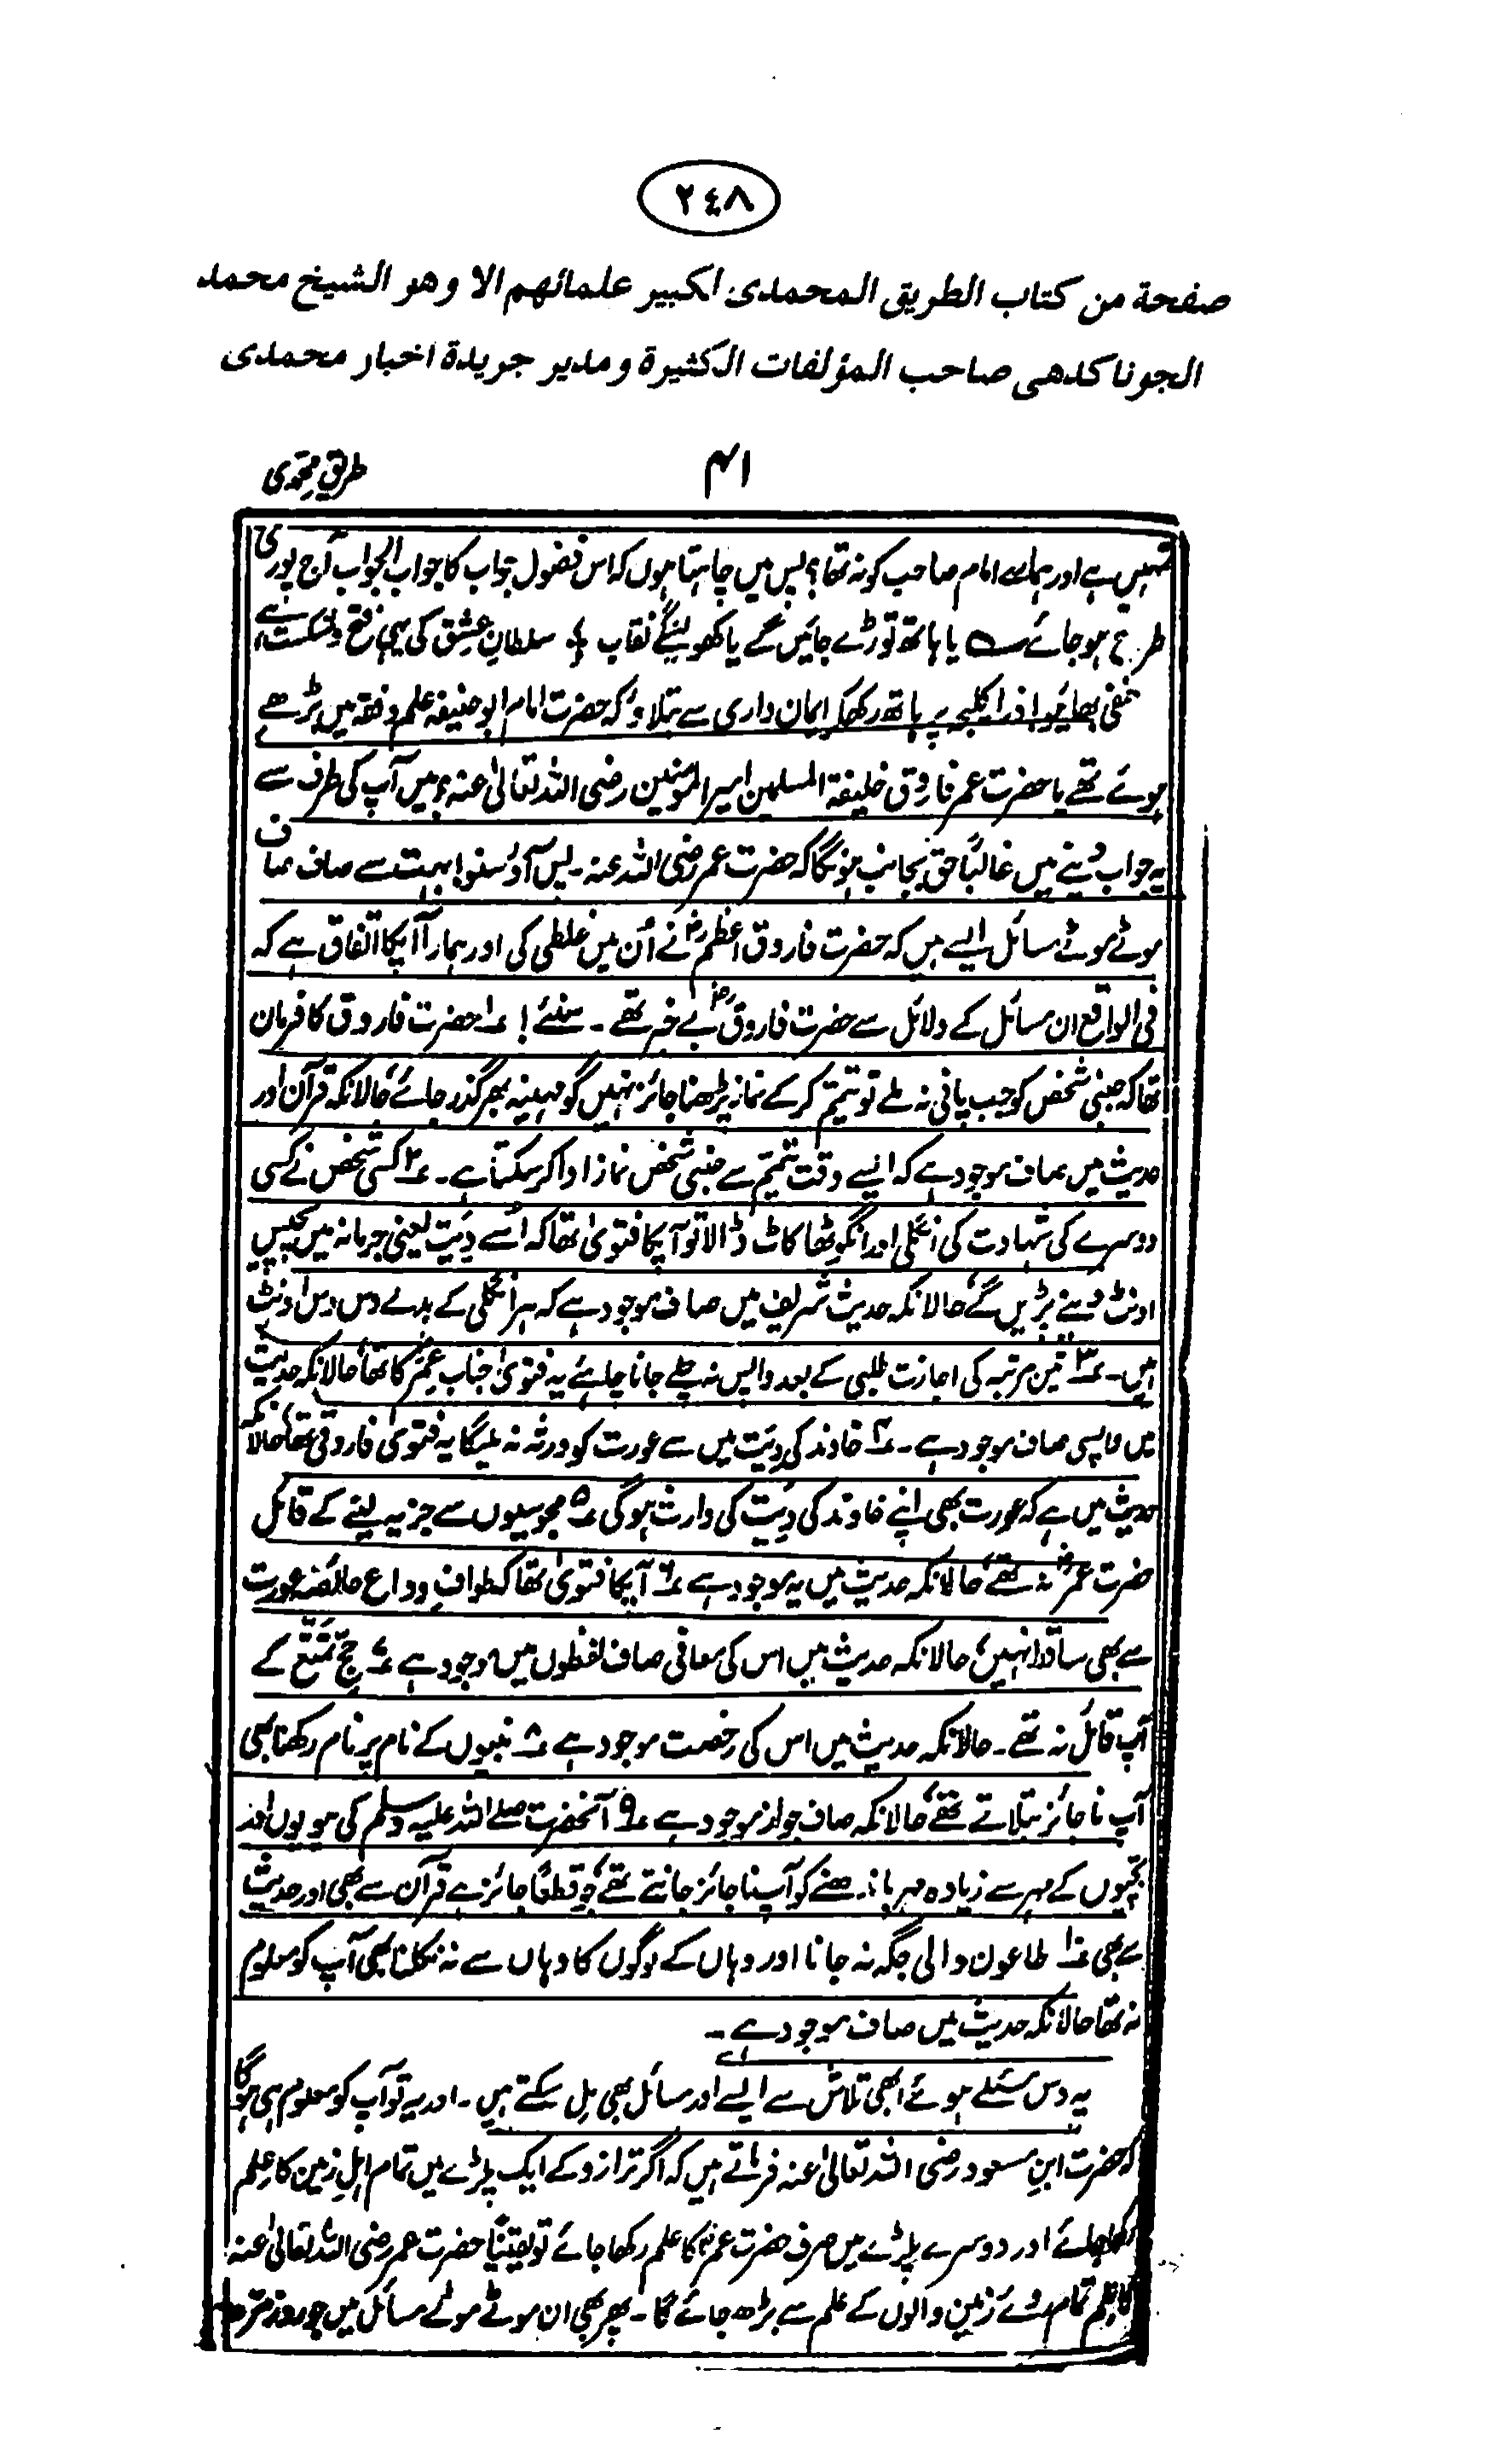 ٢٤٨
صفحة من كتاب الطريق المحمدى لكبير علمائهم الا وهو الشيخ محمد
الجونا كدهى صاحب المؤلفات الكثيرة ومدير جريدة اخبار محمدى
۴۱
طریق محمدی
تمہیں ہے اور ہمارے امام صاحب کو نہ تھا؟ پس میں چاہتا ہوں کہ اس فضول جواب کا جواب الجواب آج پوری
طرح ہو جائے ؎ یا ہاتھ توڑے جائیں گے یا کھولینگے نقاب ؞ سلطانِ عشق کی یہی فتح و شکست ہے
حنفی بھائیو! ذرا کلیجہ پر ہاتھ رکھکر ایمان داری سے بتلاؤ کہ حضرت امام ابو حنیفہ علم و فقہ میں بڑھے
ہوئے تھے یا حضرت عمر فاروق خلیفۃ المسلمین امیر المؤمنین رضی اللہ تعالیٰ عنہ؟ میں آپ کی طرف سے
یہ جواب دینے میں غالباً حق بجانب ہونگا کہ حضرت عمر رضی اللہ عنہ۔ پس آؤ سنو! بہت سے صاف صاف
موٹے موٹے مسائل ایسے ہیں کہ حضرت فاروق اعظمؓ نے اُن میں غلطی کی اور ہمارا آپکا اتفاق ہے کہ
فی الواقع ان مسائل کے دلائل سے حضرت فاروقؓ بے خبر تھے۔ سنئے! ؀۱ حضرت فاروق کا فرمان
تھا کہ جنبی شخص کو جب پانی نہ ملے تو تیمّم کر کے نماز پڑھنا جائز نہیں گو مہینہ بھر گذر جائے حالانکہ قرآن اور
حدیث میں صاف موجود ہے کہ ایسے وقت تیمّم سے جنبی شخص نماز ادا کر سکتا ہے۔ ؀۲ کسی شخص نے کسی
دوسرے کی شہادت کی انگلی اور انگوٹھا کاٹ ڈالا تو آپکا فتویٰ تھا کہ اُسے دِیَت یعنی جرمانہ میں پچیس
اونٹ دینے پڑیں گے حالانکہ حدیث شریف میں صاف موجود ہے کہ ہر انگلی کے بدلے دس دس اونٹ
ہیں۔ ؀۳ تین مرتبہ کی اجازت طلبی کے بعد واپس نہ چلے جانا چاہئے یہ فتویٰ جناب عمرؓ کا تھا حالانکہ حدیث
میں واپسی صاف موجود ہے۔ ؀۴ خاوند کی دِیَت میں سے عورت کو ورثہ نہ ملیگا یہ فتویٰ فاروقی تھا حالانکہ
حدیث میں ہے کہ عورت بھی اپنے خاوند کی دِیَت کی وارث ہوگی ؀۵ مجوسیوں سے جزیہ لینے کے قائل
حضرت عمرؓ نہ تھے حالانکہ حدیث میں یہ موجود ہے ؀۶ آپکا فتویٰ تھا کہ طوافِ وداع حائضہ عورت
سے بھی ساقط نہیں، حالانکہ حدیث میں اس کی معافی صاف لفظوں میں موجود ہے ؀۷ حجِّ تمتّع کے
آپ قائل نہ تھے۔ حالانکہ حدیث میں اس کی رخصت موجود ہے ؀۸ نبیوں کے نام پر نام رکھنا بھی
آپ ناجائز بتلاتے تھے حالانکہ صاف جواز موجود ہے ؀۹ آنحضرت صلے اللہ علیہ وسلم کی بیویوں اور
بچیوں کے مہر سے زیادہ مہر باندھنے کو آپ ناجائز جانتے تھے جو قطعاً جائز ہے قرآن سے بھی اور حدیث
سے بھی ؀۱۰ طاعون والی جگہ نہ جانا اور وہاں کے لوگوں کا وہاں سے نہ نکلنا بھی آپ کو معلوم
نہ تھا حالانکہ حدیث میں صاف موجود ہے۔
یہ دس مسئلے ہوئے ابھی تلاش سے ایسے اور مسائل بھی مل سکتے ہیں۔ اور یہ تو آپ کو معلوم ہی ہوگا
کہ حضرت ابنِ مسعود رضی اللہ تعالیٰ عنہ فرماتے ہیں کہ اگر ترازو کے ایک پلڑے میں تمام اہلِ زمین کا علم
رکھا جائے اور دوسرے پلڑے میں صرف حضرت عمرؓ کا علم رکھا جائے تو یقیناً حضرت عمر رضی اللہ تعالیٰ عنہ
کا علم تمام روئے زمین والوں کے علم سے بڑھ جائے گا۔ پھر بھی ان موٹے موٹے مسائل میں جو روزمرہ